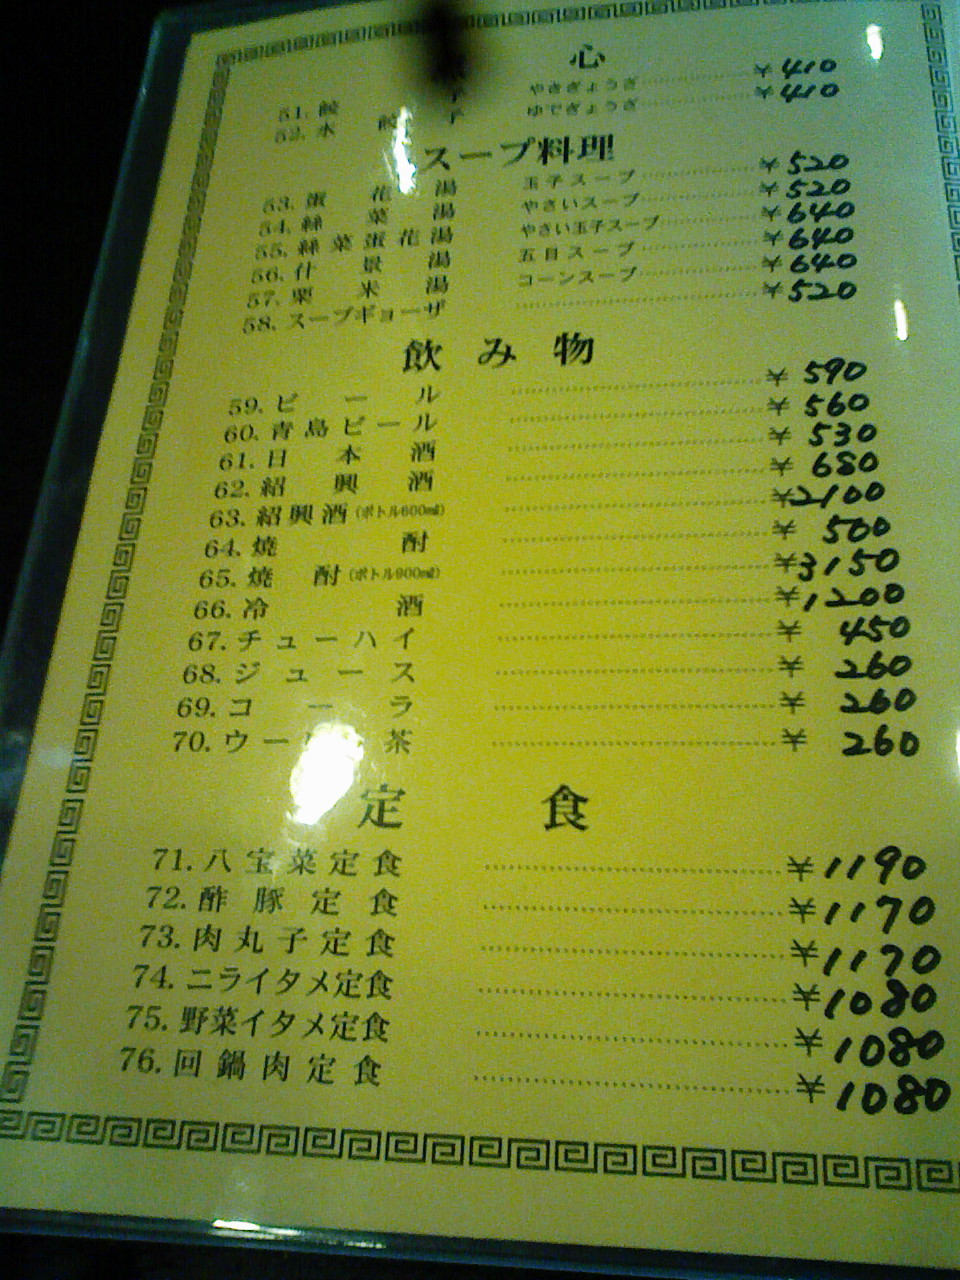 心
51. 餃 子 やきぎょうざ ¥410
52. 水 餃 子 ゆでぎょうざ ¥410
スープ料理
53. 蛋 花 湯 玉子スープ ¥520
54. 絲 菜 湯 やさいスープ ¥520
55. 絲菜蛋花湯 やさい玉子スープ ¥640
56. 什 景 湯 五目スープ ¥640
57. 粟 米 湯 コーンスープ ¥640
58. スープギョーザ ¥520
飲み物
59. ビール ¥590
60. 青島ビール ¥560
61. 日本酒 ¥530
62. 紹興酒 ¥680
63. 紹興酒(ボトル600㎖) ¥2100
64. 焼酎 ¥500
65. 焼酎(ボトル900㎖) ¥3150
66. 冷酒 ¥1200
67. チューハイ ¥450
68. ジュース ¥260
69. コーラ ¥260
70. ウー 茶 ¥260
定食
71. 八宝菜定食 ¥1190
72. 酢豚定食 ¥1170
73. 肉丸子定食 ¥1170
74. ニライタメ定食 ¥1080
75. 野菜イタメ定食 ¥1080
76. 回鍋肉定食 ¥1080